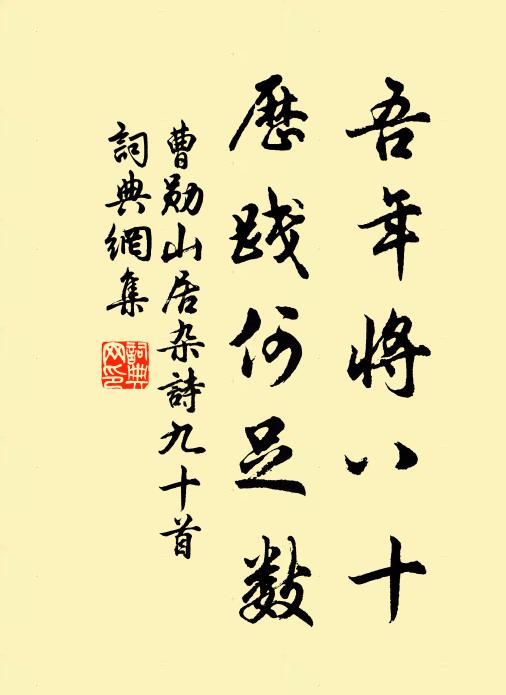 吾年将八十
歷践何足数
曹勋山居杂詩九十首
詞典網集
詞典網印